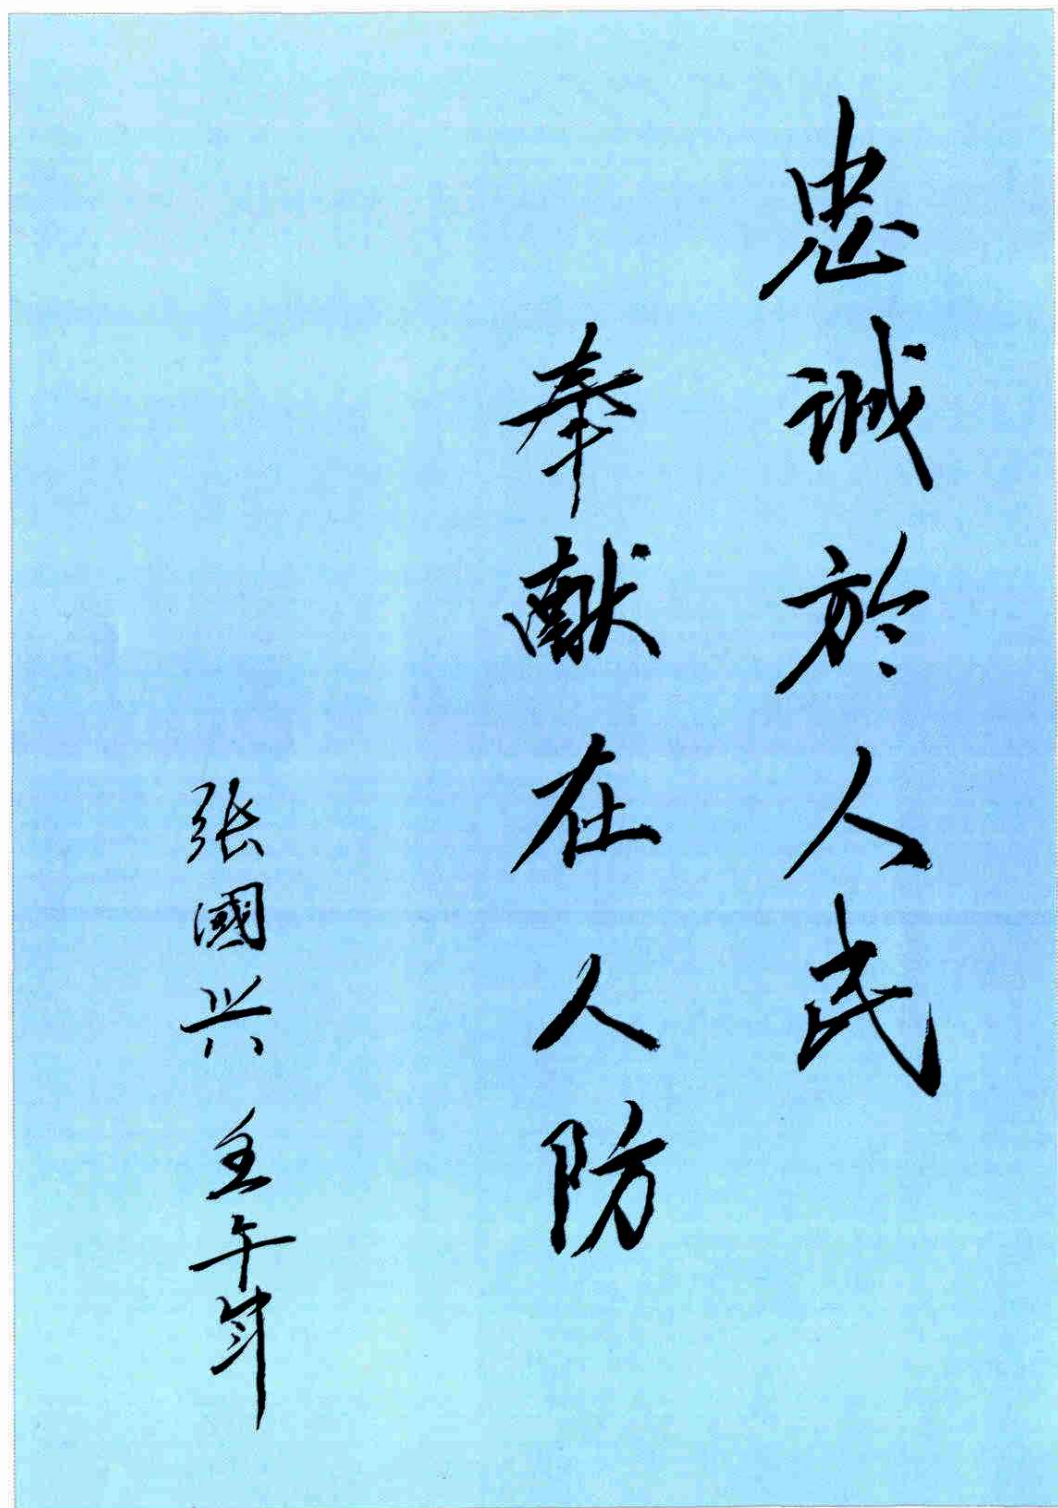 忠诚於人民
奉献在人防
张國兴 壬午年